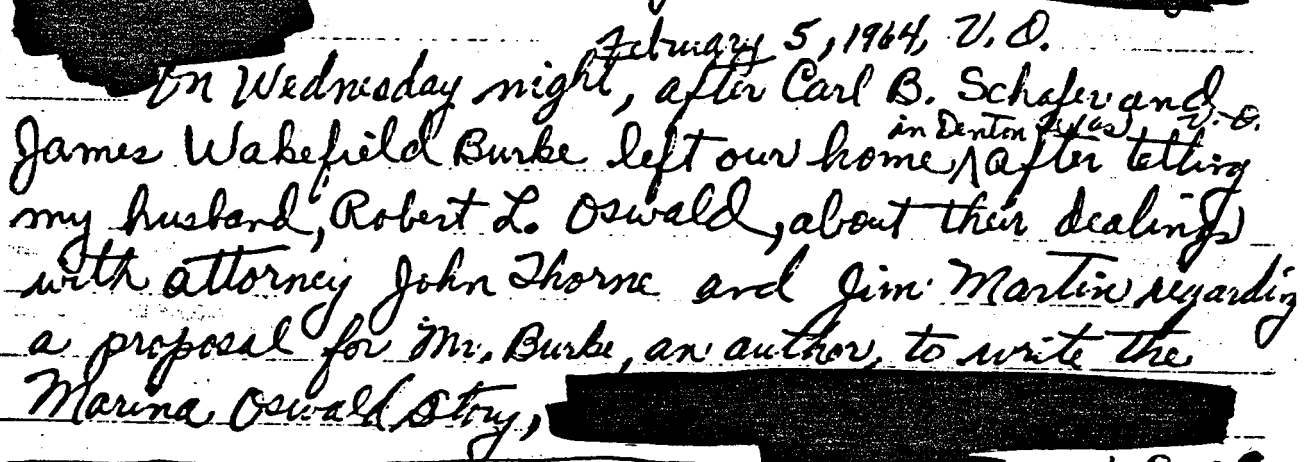 February 5, 1964, V.O.
On Wednesday night, after Carl B. Schafer and
in Denton Texas V.O.
James Wakefield Burke left our home, after telling
my husband, Robert L. Oswald, about their dealings
with attorney John Thorne and Jim Martin regarding
a proposal for Mr. Burke, an author, to write the
Marina Oswald Story,